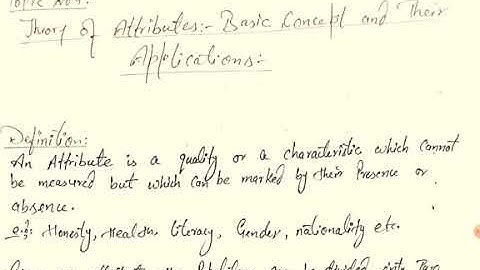 Theory of Attributes:- Basic Concept and Their
Applications:-
Definition:
An Attribute is a quality or a characteristic which cannot
be measured but which can be marked by their Presence or
absence.
e.g: Honesty, Health, literacy, Gender, nationality etc.
can be divided into Two